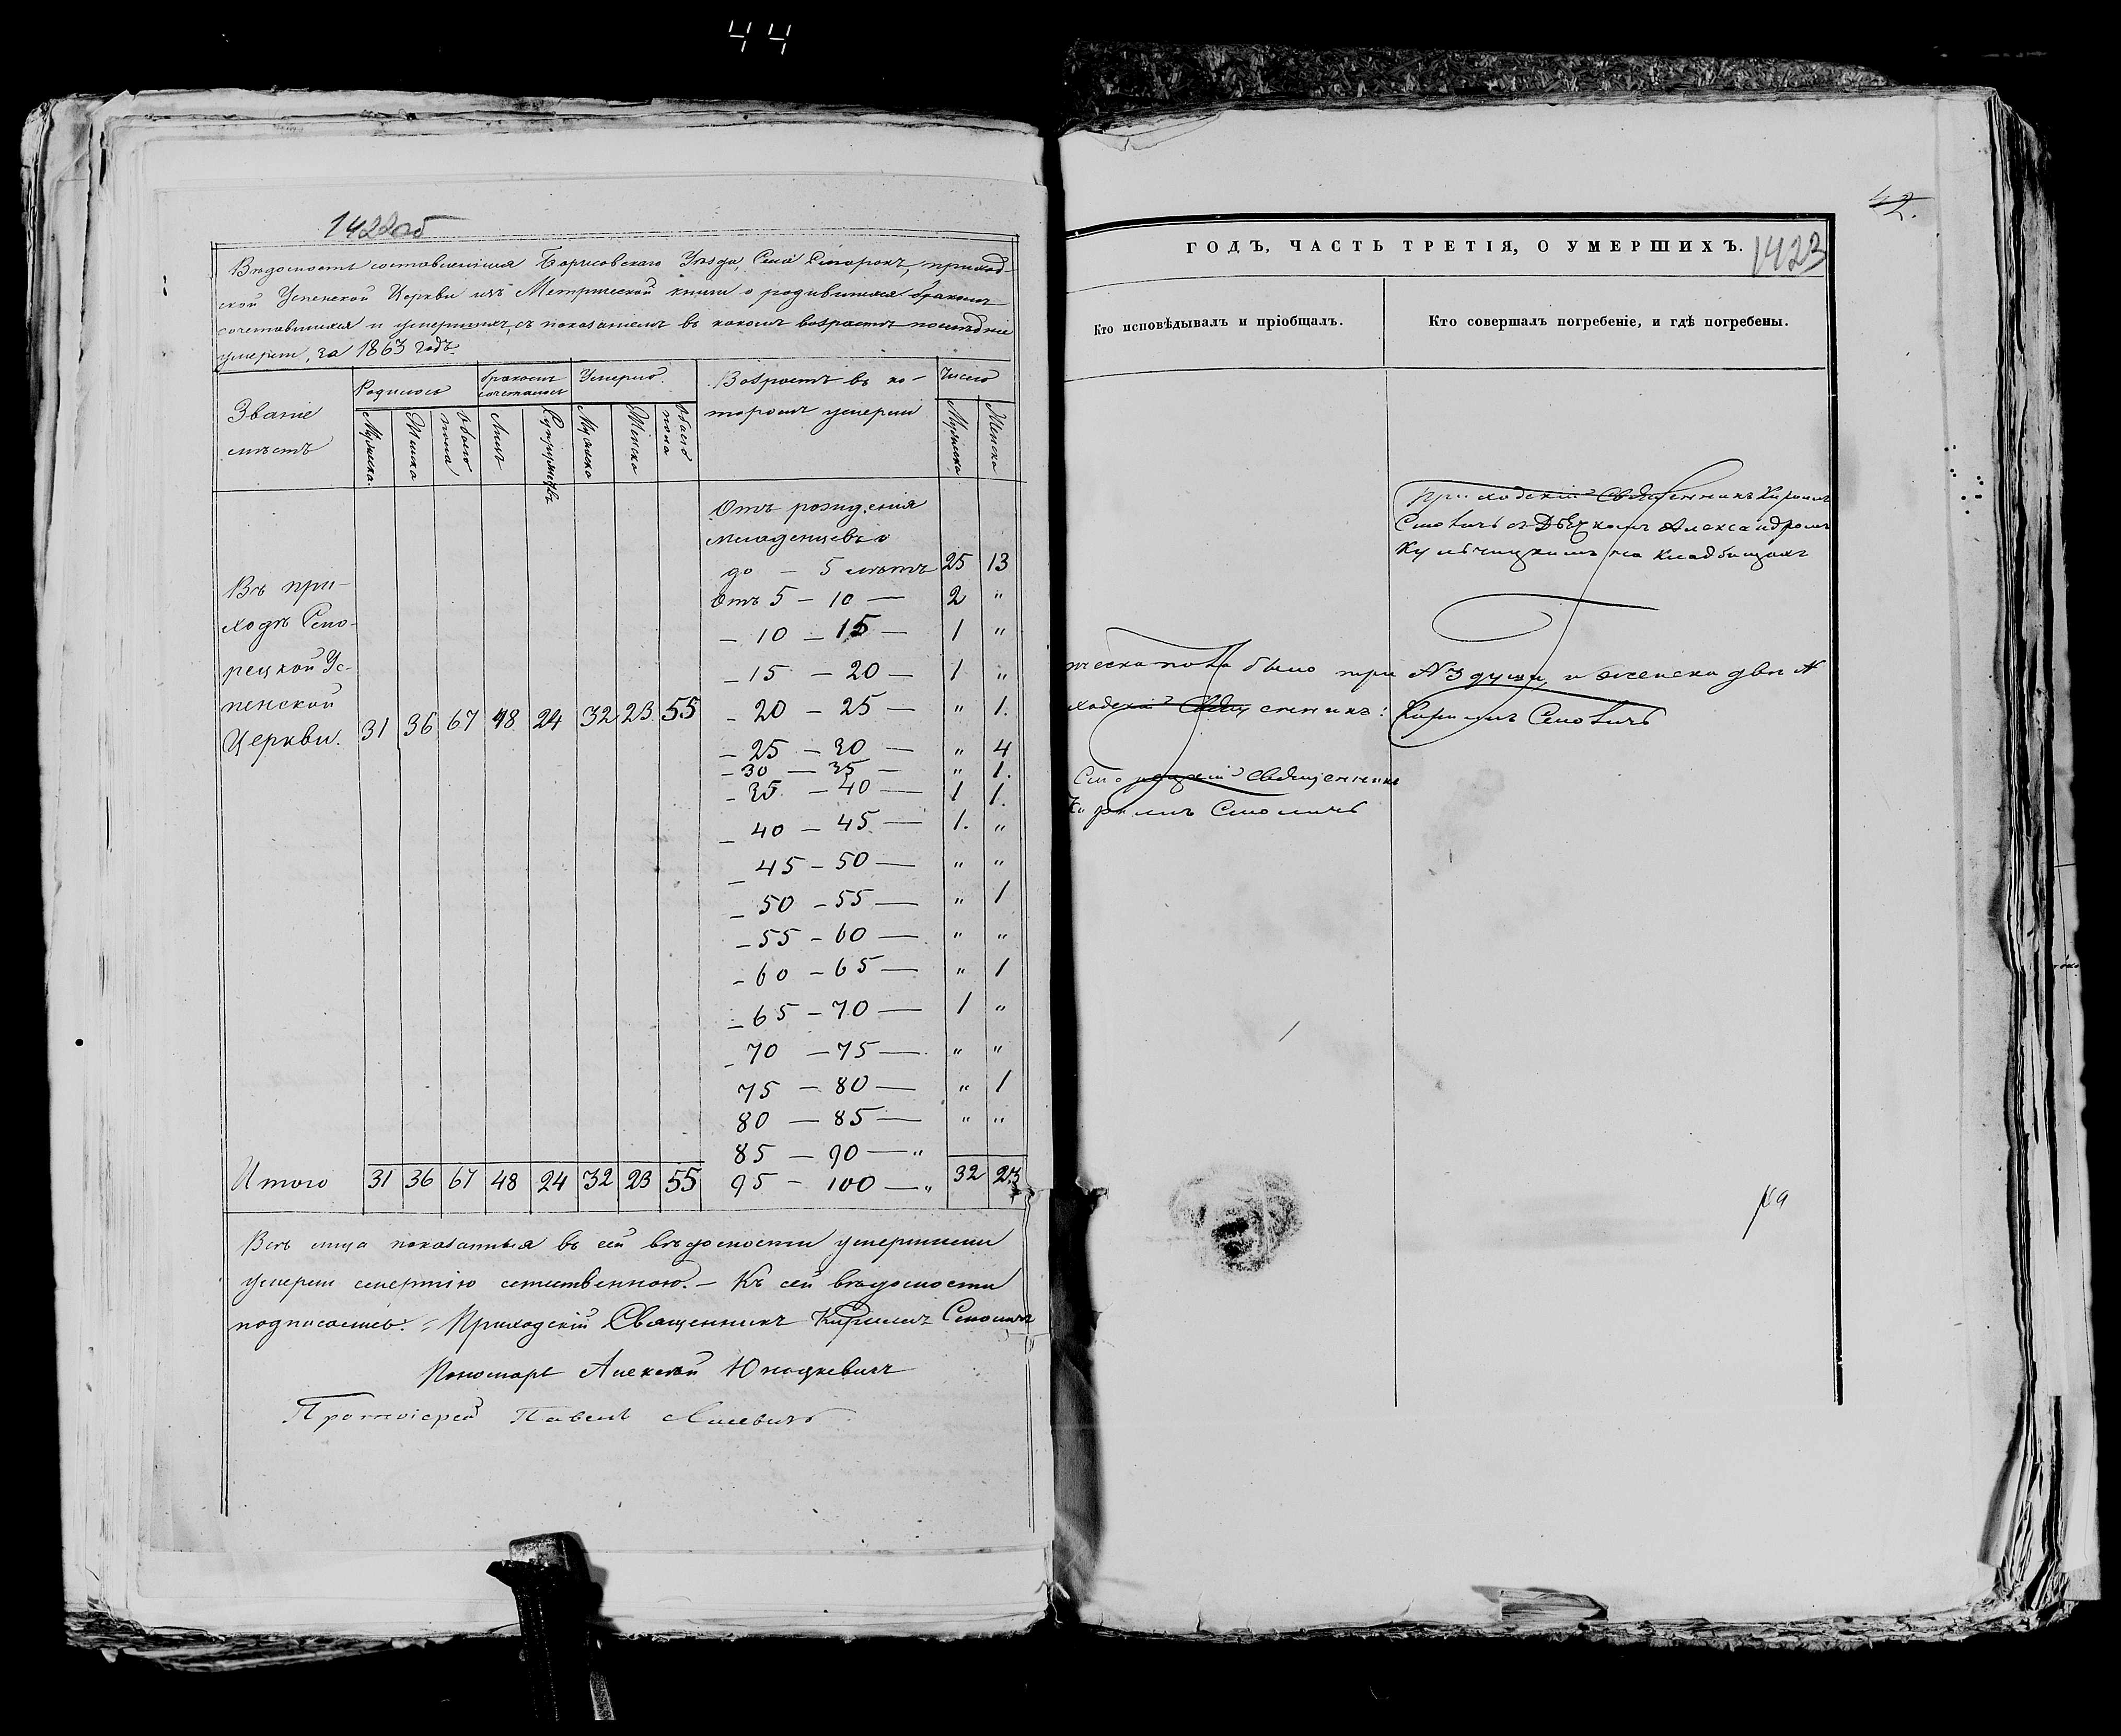 44
1422об
Вѣдомость составленная Борисовскаго Уѣзда, Села приход-
ской Успенской Церкви изъ Метрической книги о родившихся бракомъ
сочетавшихся и умершихъ, съ показаніемъ въ какомъ возрастѣ послѣдніе
умерли, за 1863 годъ.
Званіе мѣстъ
Родилось
бракомъ сочеталось
Умерло.
Возрастъ въ ко-
торомъ умерли
Число
Мужеска. Женска обоего пола Лицъ Супружествъ Мужеска Женска обоего пола Мужеска Женска
Отъ рожденія
младенцевъ
до — 5 лѣтъ 25 13
Отъ 5 — 10 — 2 "
— 10 — 15 — 1 "
— 15 — 20 — 1 "
— 20 — 25 — " 1.
— 25 — 30 — " 4
— 30 — 35 — " 1.
— 35 — 40 — 1 1.
— 40 — 45 — 1. "
— 45 — 50 — " "
— 50 — 55 — " 1
— 55 — 60 — " "
— 60 — 65 — " 1
— 65 — 70 — 1 "
— 70 — 75 — " "
75 — 80 — " 1
80 — 85 — " "
85 — 90 — "
95 — 100 — " 32 23
Въ при-
ходѣ Смо-
рецкой Ус-
пенской
Церкви. 31 36 67 48 24 32 23 55
Итого 31 36 67 48 24 32 23 55
Всѣ лица показанныя въ сей вѣдомости умершими
умерли смертію естественною. — Къ сей вѣдомости
подписались: Приходскій Священникъ Кириллъ Смоличъ
Пономарь Алексѣй
Протоіерей Павелъ
42.
ГОДЪ, ЧАСТЬ ТРЕТІЯ, О УМЕРШИХЪ.
1423
Кто исповѣдывалъ и пріобщалъ.
Кто совершалъ погребеніе, и гдѣ погребены.
Приходскій Священникъ Кириллъ
Смоличъ съ Дьячкомъ Александромъ
на кладбищахъ
ческа пола было три №3 души, и женска двѣ №
ходскій Священникъ: Кириллъ Смоличъ
Священникъ
Кириллъ Смоличъ